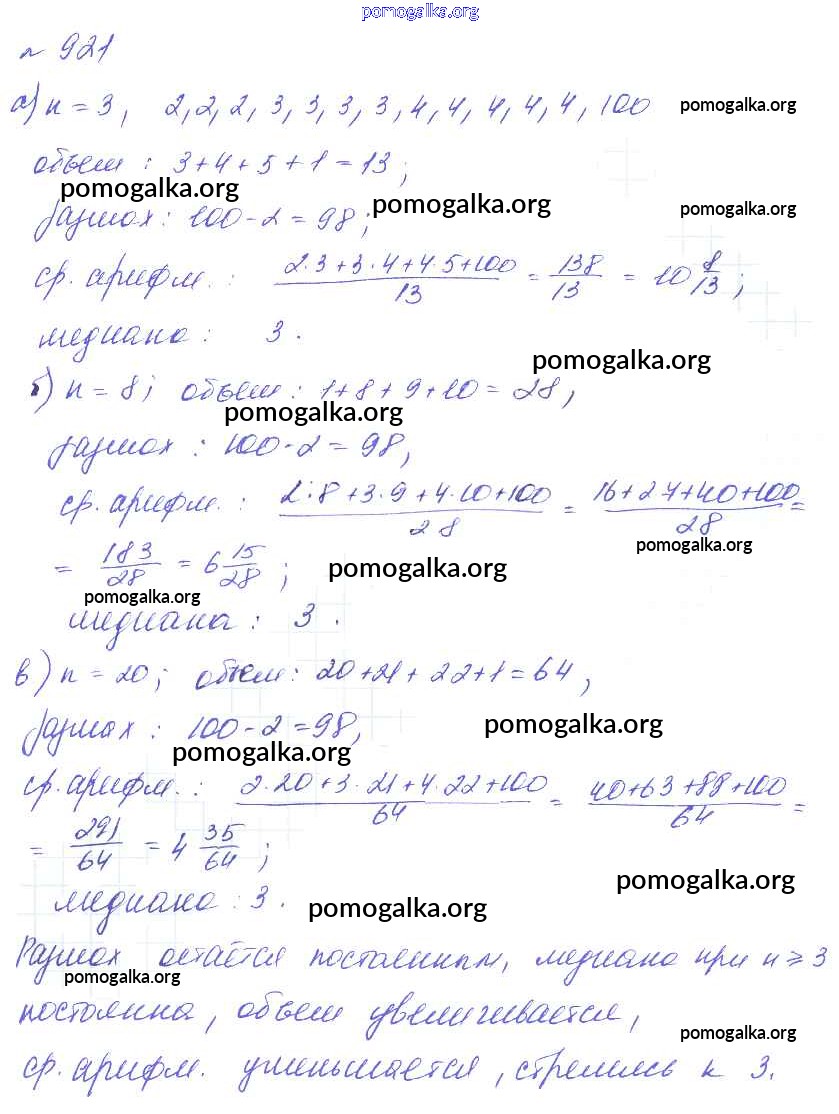 pomogalka.org
№ 921
а) n = 3, 2, 2, 2, 3, 3, 3, 3, 4, 4, 4, 4, 4, 100 pomogalka.org
объем : 3+4+5+1=13;
pomogalka.org
размах : 100-2=98; pomogalka.org pomogalka.org
ср. арифм. : (2·3+3·4+4·5+100)/13 = 138/13 = 10 8/13 ;
медиана : 3 .
pomogalka.org
б) n = 8; объем : 1+8+9+10=28,
pomogalka.org
размах : 100-2=98,
ср. арифм. : (2·8+3·9+4·10+100)/28 = (16+27+40+100)/28 =
pomogalka.org
= 183/28 = 6 15/28 ; pomogalka.org
pomogalka.org
медиана : 3 .
в) n = 20; объем: 20+21+22+1=64,
размах : 100-2=98, pomogalka.org
pomogalka.org
ср. арифм. : (2·20+3·21+4·22+100)/64 = (40+63+88+100)/64 =
= 291/64 = 4 35/64 ;
pomogalka.org
медиана : 3 . pomogalka.org
Размах остаётся постоянным, медиана при n ⩾ 3
pomogalka.org
постоянна, объем увеличивается,
pomogalka.org
ср. арифм. уменьшается, стремясь к 3.